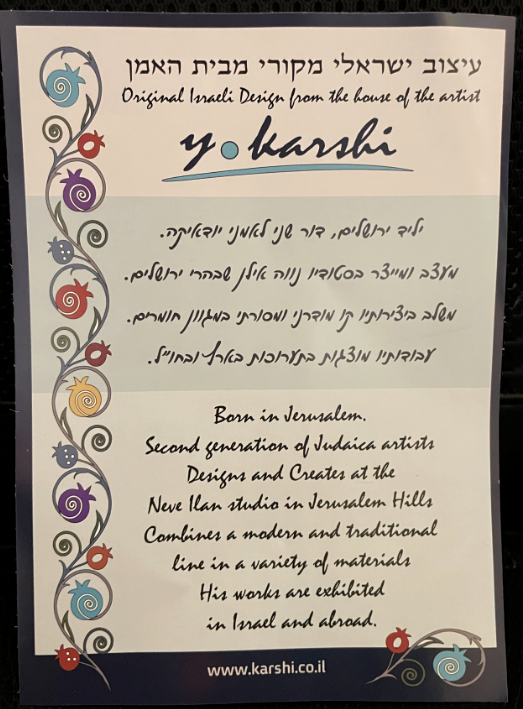 עיצוב ישראלי מקורי מבית האמן
Original Israeli Design from the house of the artist
y. karshi
יליד ירושלים, דור שני לאמני יודאיקה.
מעצב ומייצר בסטודיו נווה אילן שבהרי ירושלים.
משלב ביצירותיו קו מודרני ומסורתי במגוון חומרים.
עבודותיו מוצגות בתערוכות בארץ ובחו"ל.
Born in Jerusalem.
Second generation of Judaica artists
Designs and Creates at the
Neve Ilan studio in Jerusalem Hills
Combines a modern and traditional
line in a variety of materials
His works are exhibited
in Israel and abroad.
www.karshi.co.il